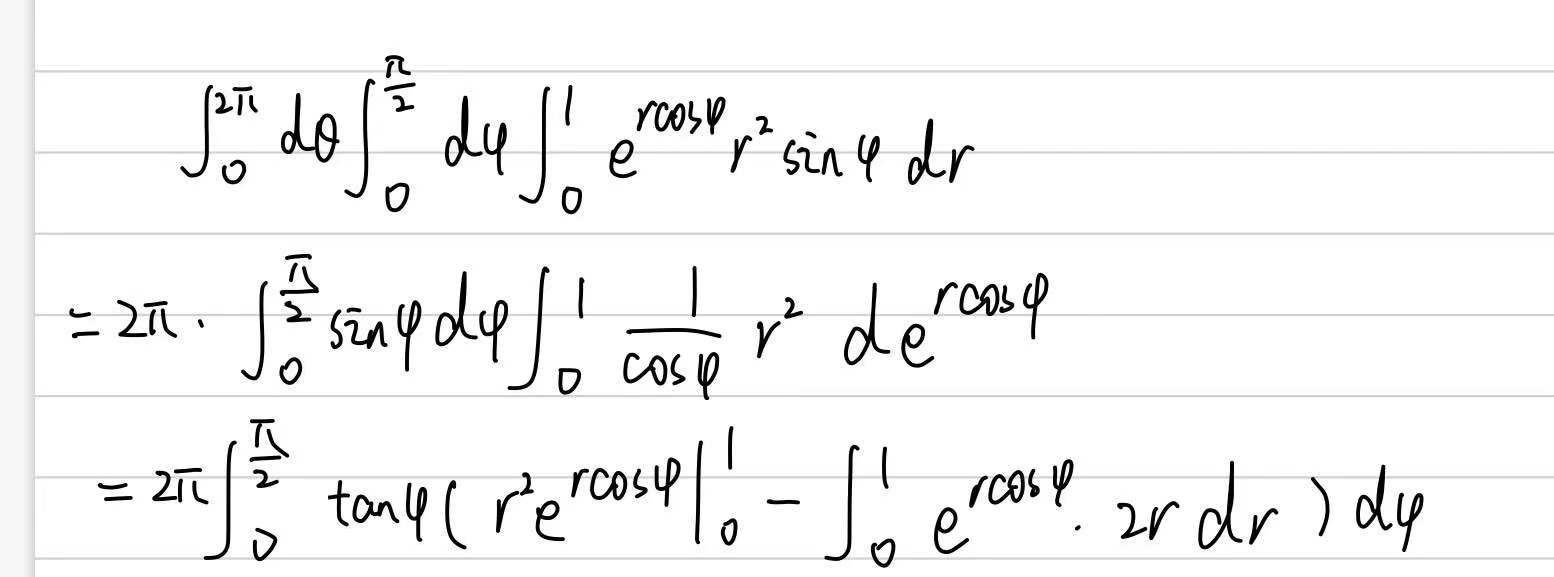 ∫₀^{2π} dθ ∫₀^{π/2} dφ ∫₀^1 e^{rcosφ} r² sinφ dr
= 2π · ∫₀^{π/2} sinφ dφ ∫₀^1 \frac{1}{cosφ} r² de^{rcosφ}
= 2π ∫₀^{π/2} tanφ ( r²e^{rcosφ} |₀^1 − ∫₀^1 e^{rcosφ} · 2r dr ) dφ